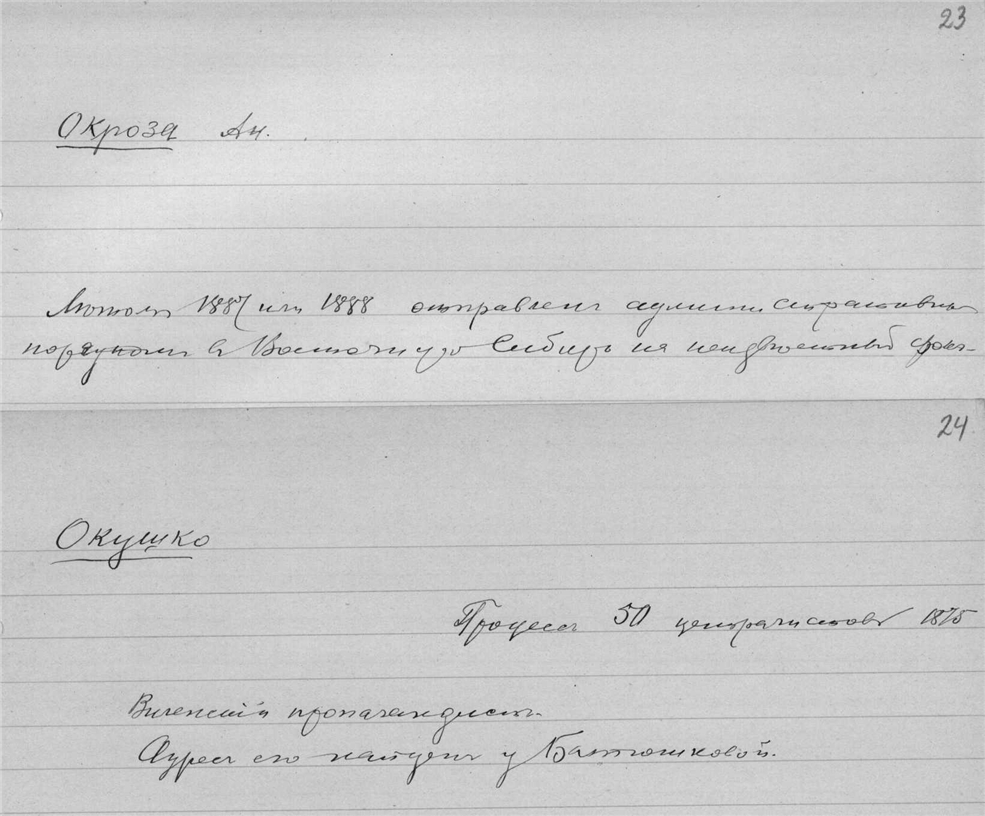 23
Окроза Ан.
Лѣтомъ 1887 или 1888 отправленъ административн
порядкомъ в Восточную Сибирь на неизвѣстный срокъ
24
Окушко
Процессъ 50 централистовъ 1875
Виленскій пропагандистъ.
Адресъ его найденъ у Батюшковой.